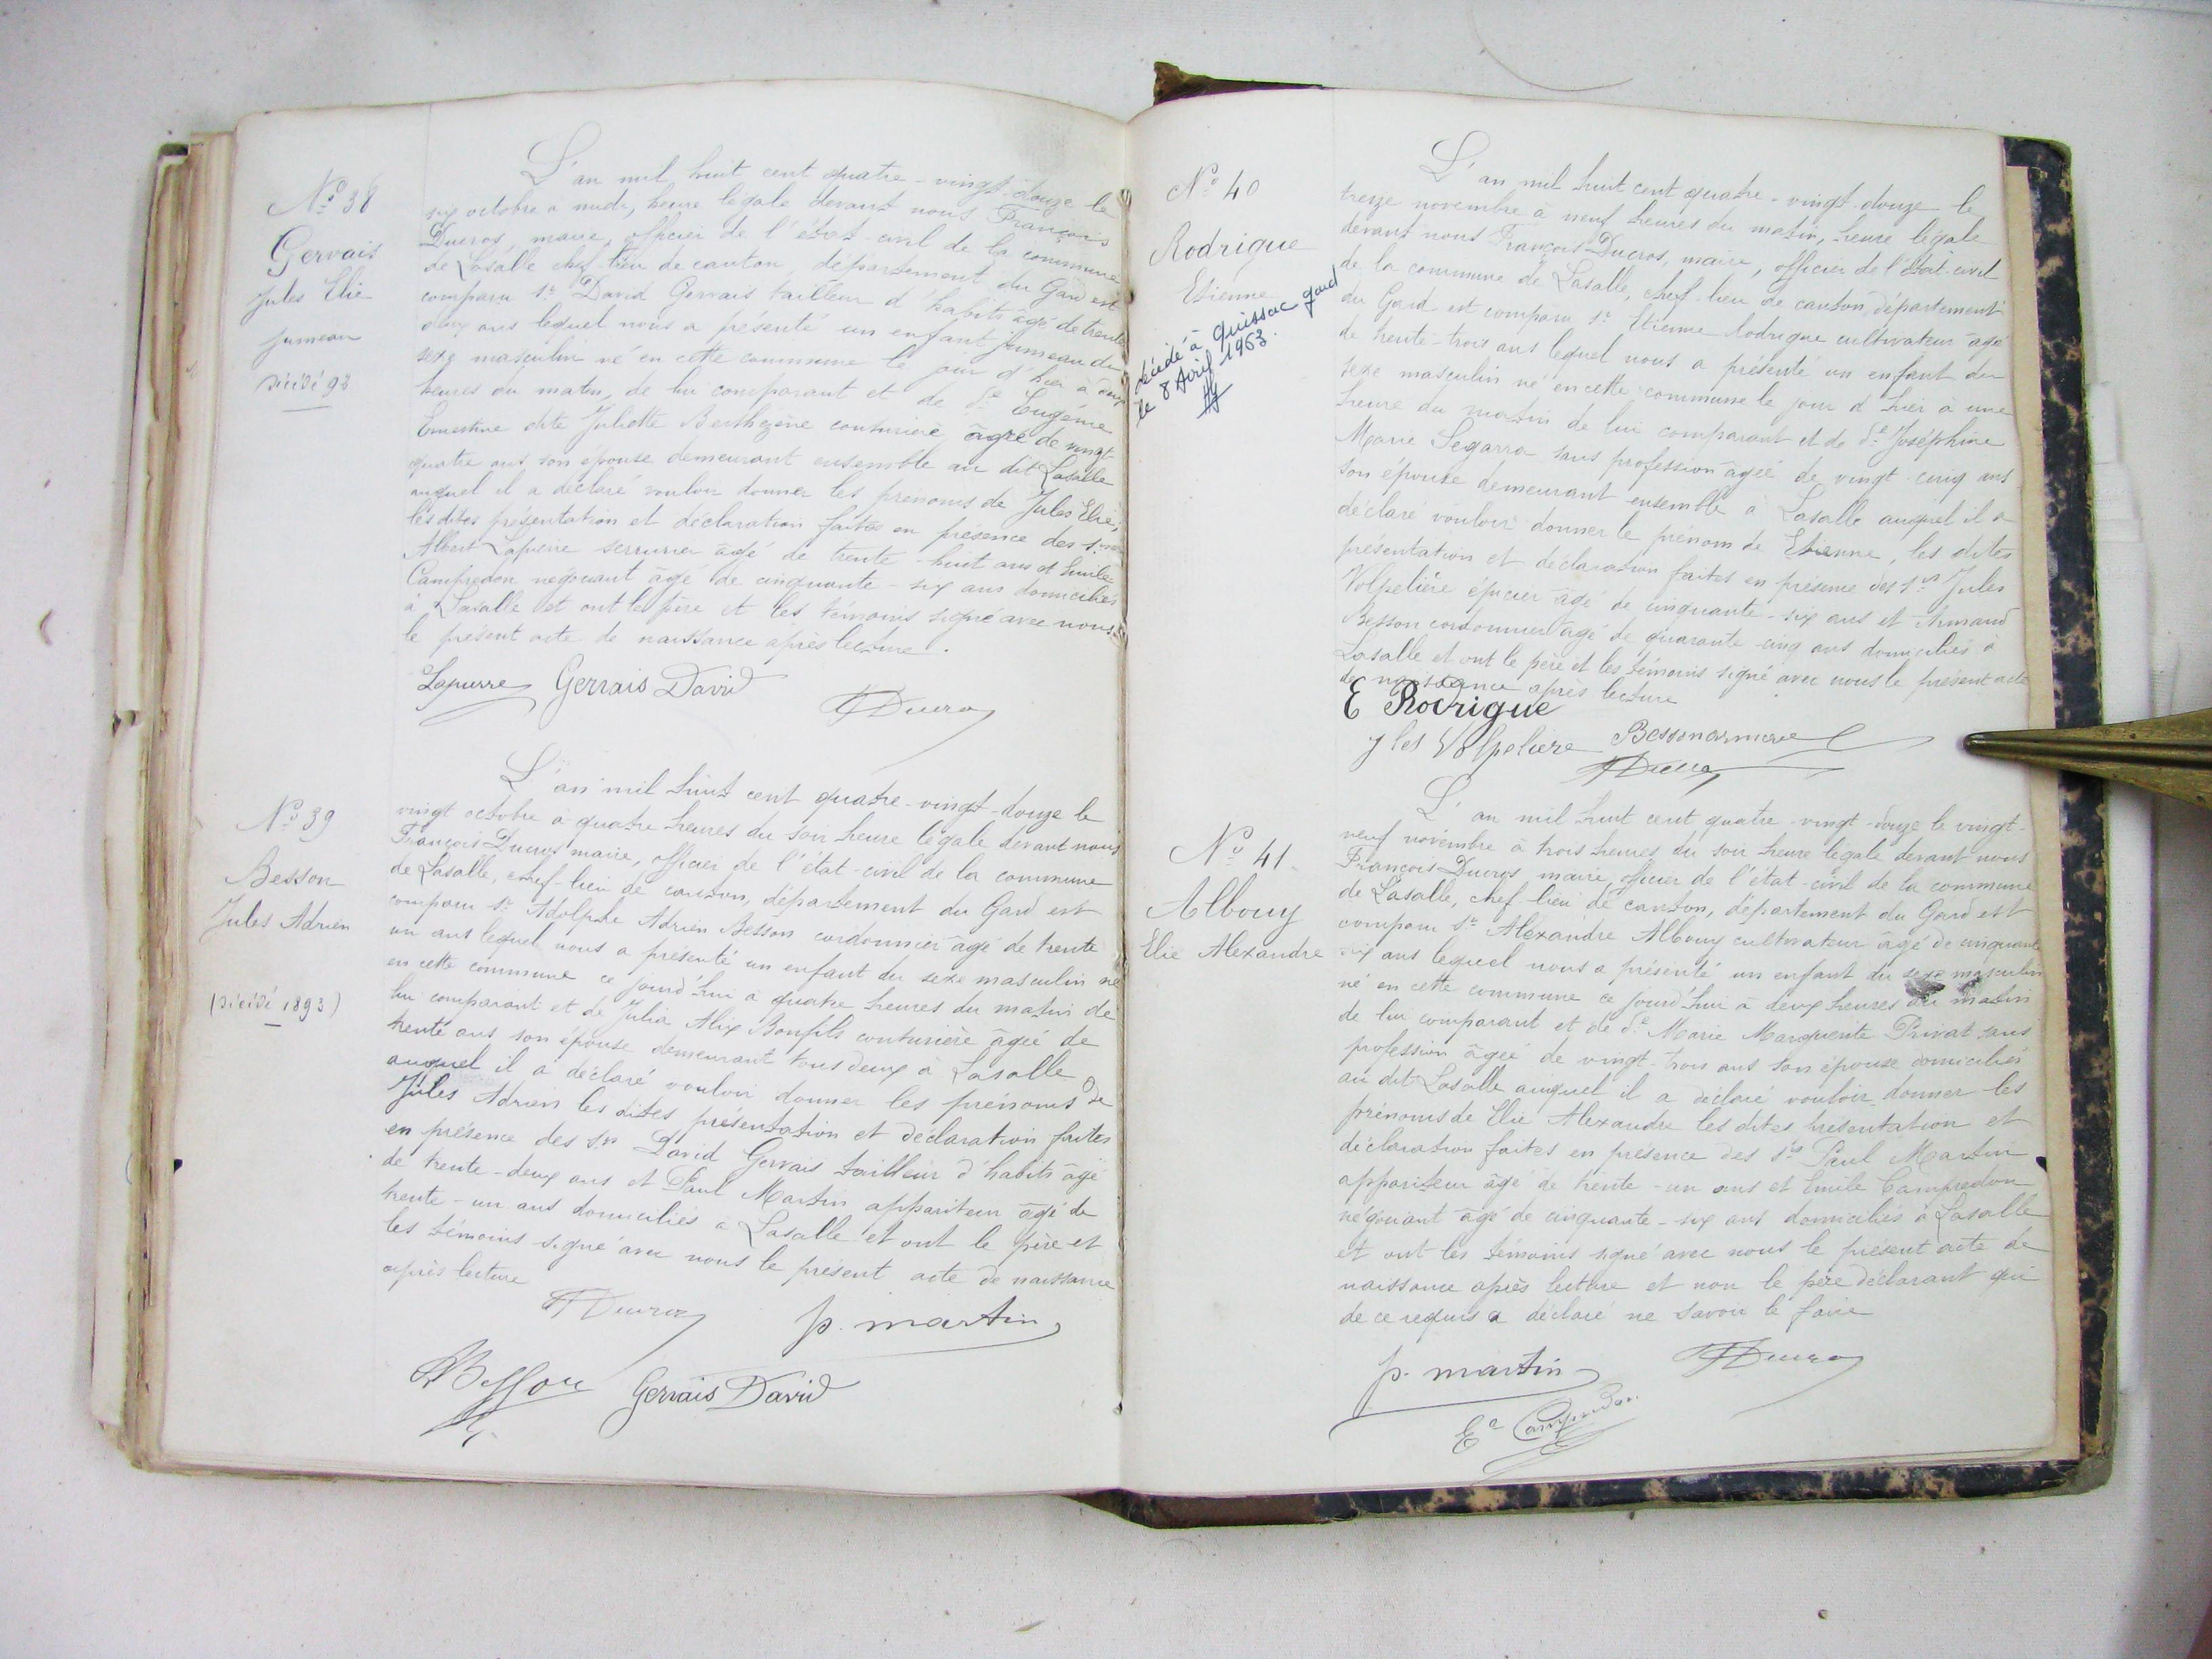 N° 38
Gervais
Jules Elie
jumeau
décédé 92
L'an mil huit cent quatre-vingt-douze le
six octobre à midi, heure légale devant nous François
Ducros, maire, officier de l'état-civil de la commune
de Lasalle chef-lieu de canton, département du Gard est
comparu sr David Gervais tailleur d'habits âgé de trente
deux ans lequel nous a présenté un enfant jumeau du
sexe masculin né en cette commune le jour d'hier à deux
heures du matin, de lui comparant et de de Eugénie
Ernestine dite Juliette Berthezène couturière, âgée de vingt-
quatre ans son épouse demeurant ensemble au dit Lasalle
auquel il a déclaré vouloir donner les prénoms de Jules Elie,
les dites présentation et déclaration faites en présence des srs
Albert Lapierre serrurier âgé de trente-huit ans et Emile
Campredon négociant âgé de cinquante-six ans domiciliés
à Lasalle et ont le père et les témoins signé avec nous
le présent acte de naissance après lecture.
Lapierre Gervais David
FDucros
N° 39
Besson
Jules Adrien
(décédé 1893)
L'an mil huit cent quatre-vingt-douze le
vingt octobre à quatre heures du soir heure légale devant nous
François Ducros maire, officier de l'état-civil de la commune
de Lasalle, chef-lieu de canton, département du Gard est
comparu sr Adolphe Adrien Besson cordonnier âgé de trente
un ans lequel nous a présenté un enfant du sexe masculin né
en cette commune ce jourd'hui à quatre heures du matin de
lui comparant et de Julia Alix Bonfils couturière âgée de
trente ans son épouse demeurant tous deux à Lasalle
auquel il a déclaré vouloir donner les prénoms de
Jules Adrien les dites présentation et déclaration faites
en présence des srs David Gervais tailleur d'habits âgé
de trente-deux ans et Paul Martin appariteur âgé de
trente-un ans domiciliés à Lasalle et ont le père et
les témoins signé avec nous le présent acte de naissance
après lecture
FDucros p. martin
ABesson Gervais David
N° 40
Rodrigue
Etienne
décédé à Quissac gard
le 8 Avril 1963.
L'an mil huit cent quatre-vingt-douze le
treize novembre à neuf heures du matin, heure légale
devant nous François Ducros, maire, officier de l'état-civil
de la commune de Lasalle, chef-lieu de canton, département
du Gard est comparu sr Etienne Rodrigue cultivateur âgé
de trente-trois ans lequel nous a présenté un enfant du
sexe masculin né en cette commune le jour d'hier à une
heure du matin de lui comparant et de de Joséphine
Marie Segarra sans profession âgée de vingt-cinq ans
son épouse demeurant ensemble à Lasalle auquel il a
déclaré vouloir donner le prénom de Etienne, les dites
présentation et déclaration faites en présence des srs Jules
Volpelière épicier âgé de cinquante-six ans et Armand
Besson cordonnier âgé de quarante-cinq ans domiciliés à
Lasalle et ont le père et les témoins signé avec nous le présent acte
de naissance après lecture
E Rodrigue
Jles Volpeliere Besson armand
FDucros
N° 41
Albouy
Elie Alexandre
L'an mil huit cent quatre-vingt-douze le vingt-
neuf novembre à trois heures du soir heure légale devant nous
François Ducros maire officier de l'état-civil de la commune
de Lasalle, chef-lieu de canton, département du Gard est
comparu sr Alexandre Albouy cultivateur âgé de cinquante
six ans lequel nous a présenté un enfant du sexe masculin
né en cette commune ce jourd'hui à deux heures du matin
de lui comparant et de de Marie Marguerite Privat sans
profession âgée de vingt-trois ans son épouse domiciliés
au dit Lasalle auquel il a déclaré vouloir donner les
prénoms de Elie Alexandre les dites présentation et
déclaration faites en présence des srs Paul Martin
appariteur âgé de trente-un ans et Emile Campredon
négociant âgé de cinquante-six ans domiciliés à Lasalle
et ont les témoins signé avec nous le présent acte de
naissance après lecture et non le père déclarant qui
de ce requis a déclaré ne savoir le faire
p. martin FDucros
Ee Campredon